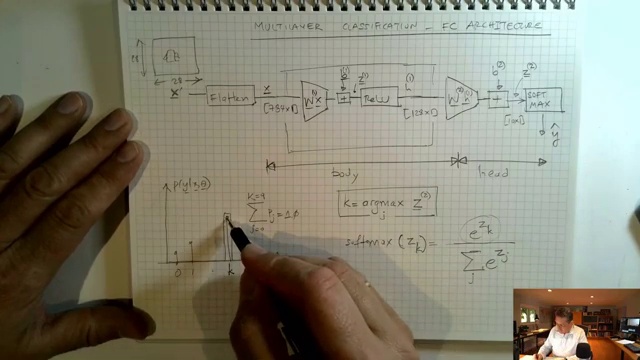 MULTILAYER CLASSIFICATION - FC ARCHITECTURE
28
28
x
Flatten
x
[784x1]
W(1) x
b(1)
+
z(1)
ReLU
h(1)
[128x1]
W(2) h(1)
b(2)
+
z(2)
[10x1]
SOFT
MAX
ŷ
body
head
p(y|x,θ)
0 1 k
K=9
∑ Pj = 1.0
j=0
k = argmax z(2)
j
softmax (zk) = e^zk
∑ e^zj
j